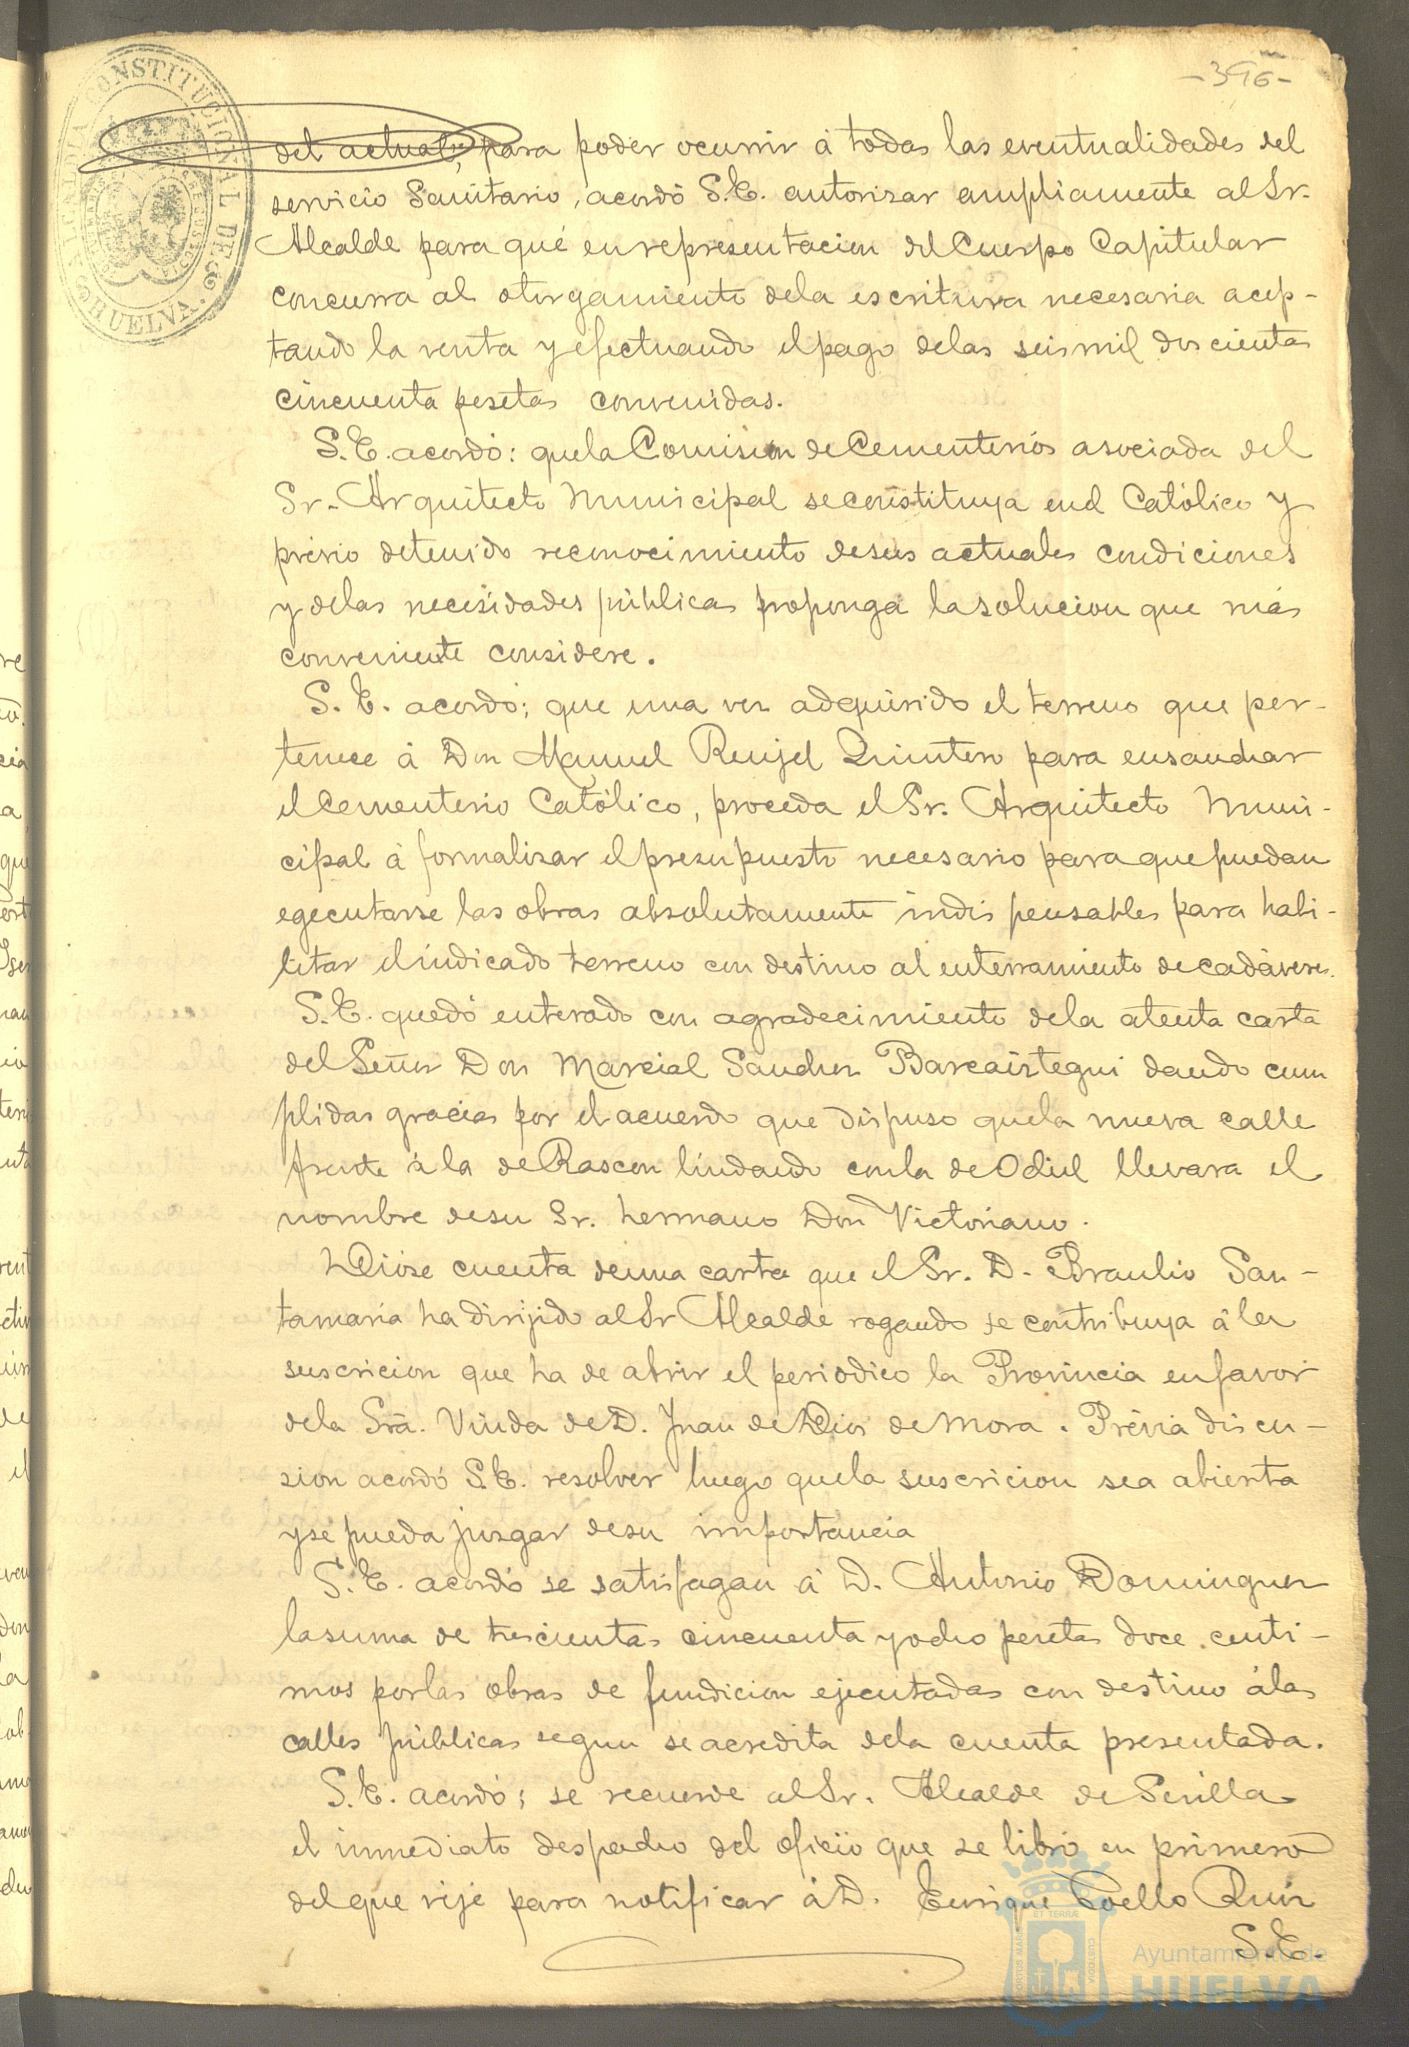 -396-
ALCALDIA CONSTITUCIONAL DE HUELVA
del actual, para poder ocurrir á todas las eventualidades del
servicio Sanitario, acordó S.E. autorizar ampliamente al Sr.
Alcalde para qué en representacion del Cuerpo Capitular
concurra al otorgamiento dela escritura necesaria acep-
tando la venta y efectuando el pago delas seis mil doscientas
cincuenta pesetas convenidas.
S.E. acordó: quela Comision de Cementerios asociada del
Sr. Arquitecto Municipal se constituya en el Católico y
prévio detenido reconocimiento desus actuales condiciones
y delas necesidades públicas proponga la solucion que más
conveniente considere.
S.E. acordó; que una vez adquirido el terreno que per-
tenece á Don Manuel Rengel Quintero para ensanchar
el Cementerio Católico, proceda el Sr. Arquitecto Muni-
cipal á formalizar el presupuesto necesario para que puedan
egecutarse las obras absolutamente indispensables para habi-
litar el indicado terreno con destino al enterramiento de cadáveres.
S.E. quedó enterado con agradecimiento dela atenta carta
del Señor Don Marcial Sanchez Barcaiztegui dando cum
plidas gracias por el acuerdo que dispuso quela nueva calle
frente á la de Rascon lindando conla de Odiel llevara el
nombre desu Sr. hermano Don Victoriano.
Dióse cuenta deuna carta que el Sr. D. Braulio San-
tamaría ha dirijido al Sr Alcalde rogando se contribuya á la
suscricion que ha de abrir el periodico la Provincia en favor
dela Srâ. Viuda de D. Juan de Dios de Mora. Prévia discu-
sion acordó S.E. resolver luego quela suscricion sea abierta
y se pueda juzgar desu importancia
S.E. acordó se satisfagan á D. Antonio Dominguez
la suma de trescientas cincuenta y ocho pesetas doce centi-
mos por las obras de fundicion ejecutadas con destino á las
calles públicas segun se acredita dela cuenta presentada.
S.E. acordó; se recuerde al Sr. Alcalde de Sevilla
el inmediato despacho del oficio que se libró en primero
del que rije para notificar á D. Enrique Coello Ruiz
S.E.
Ayuntamiento de
HUELVA